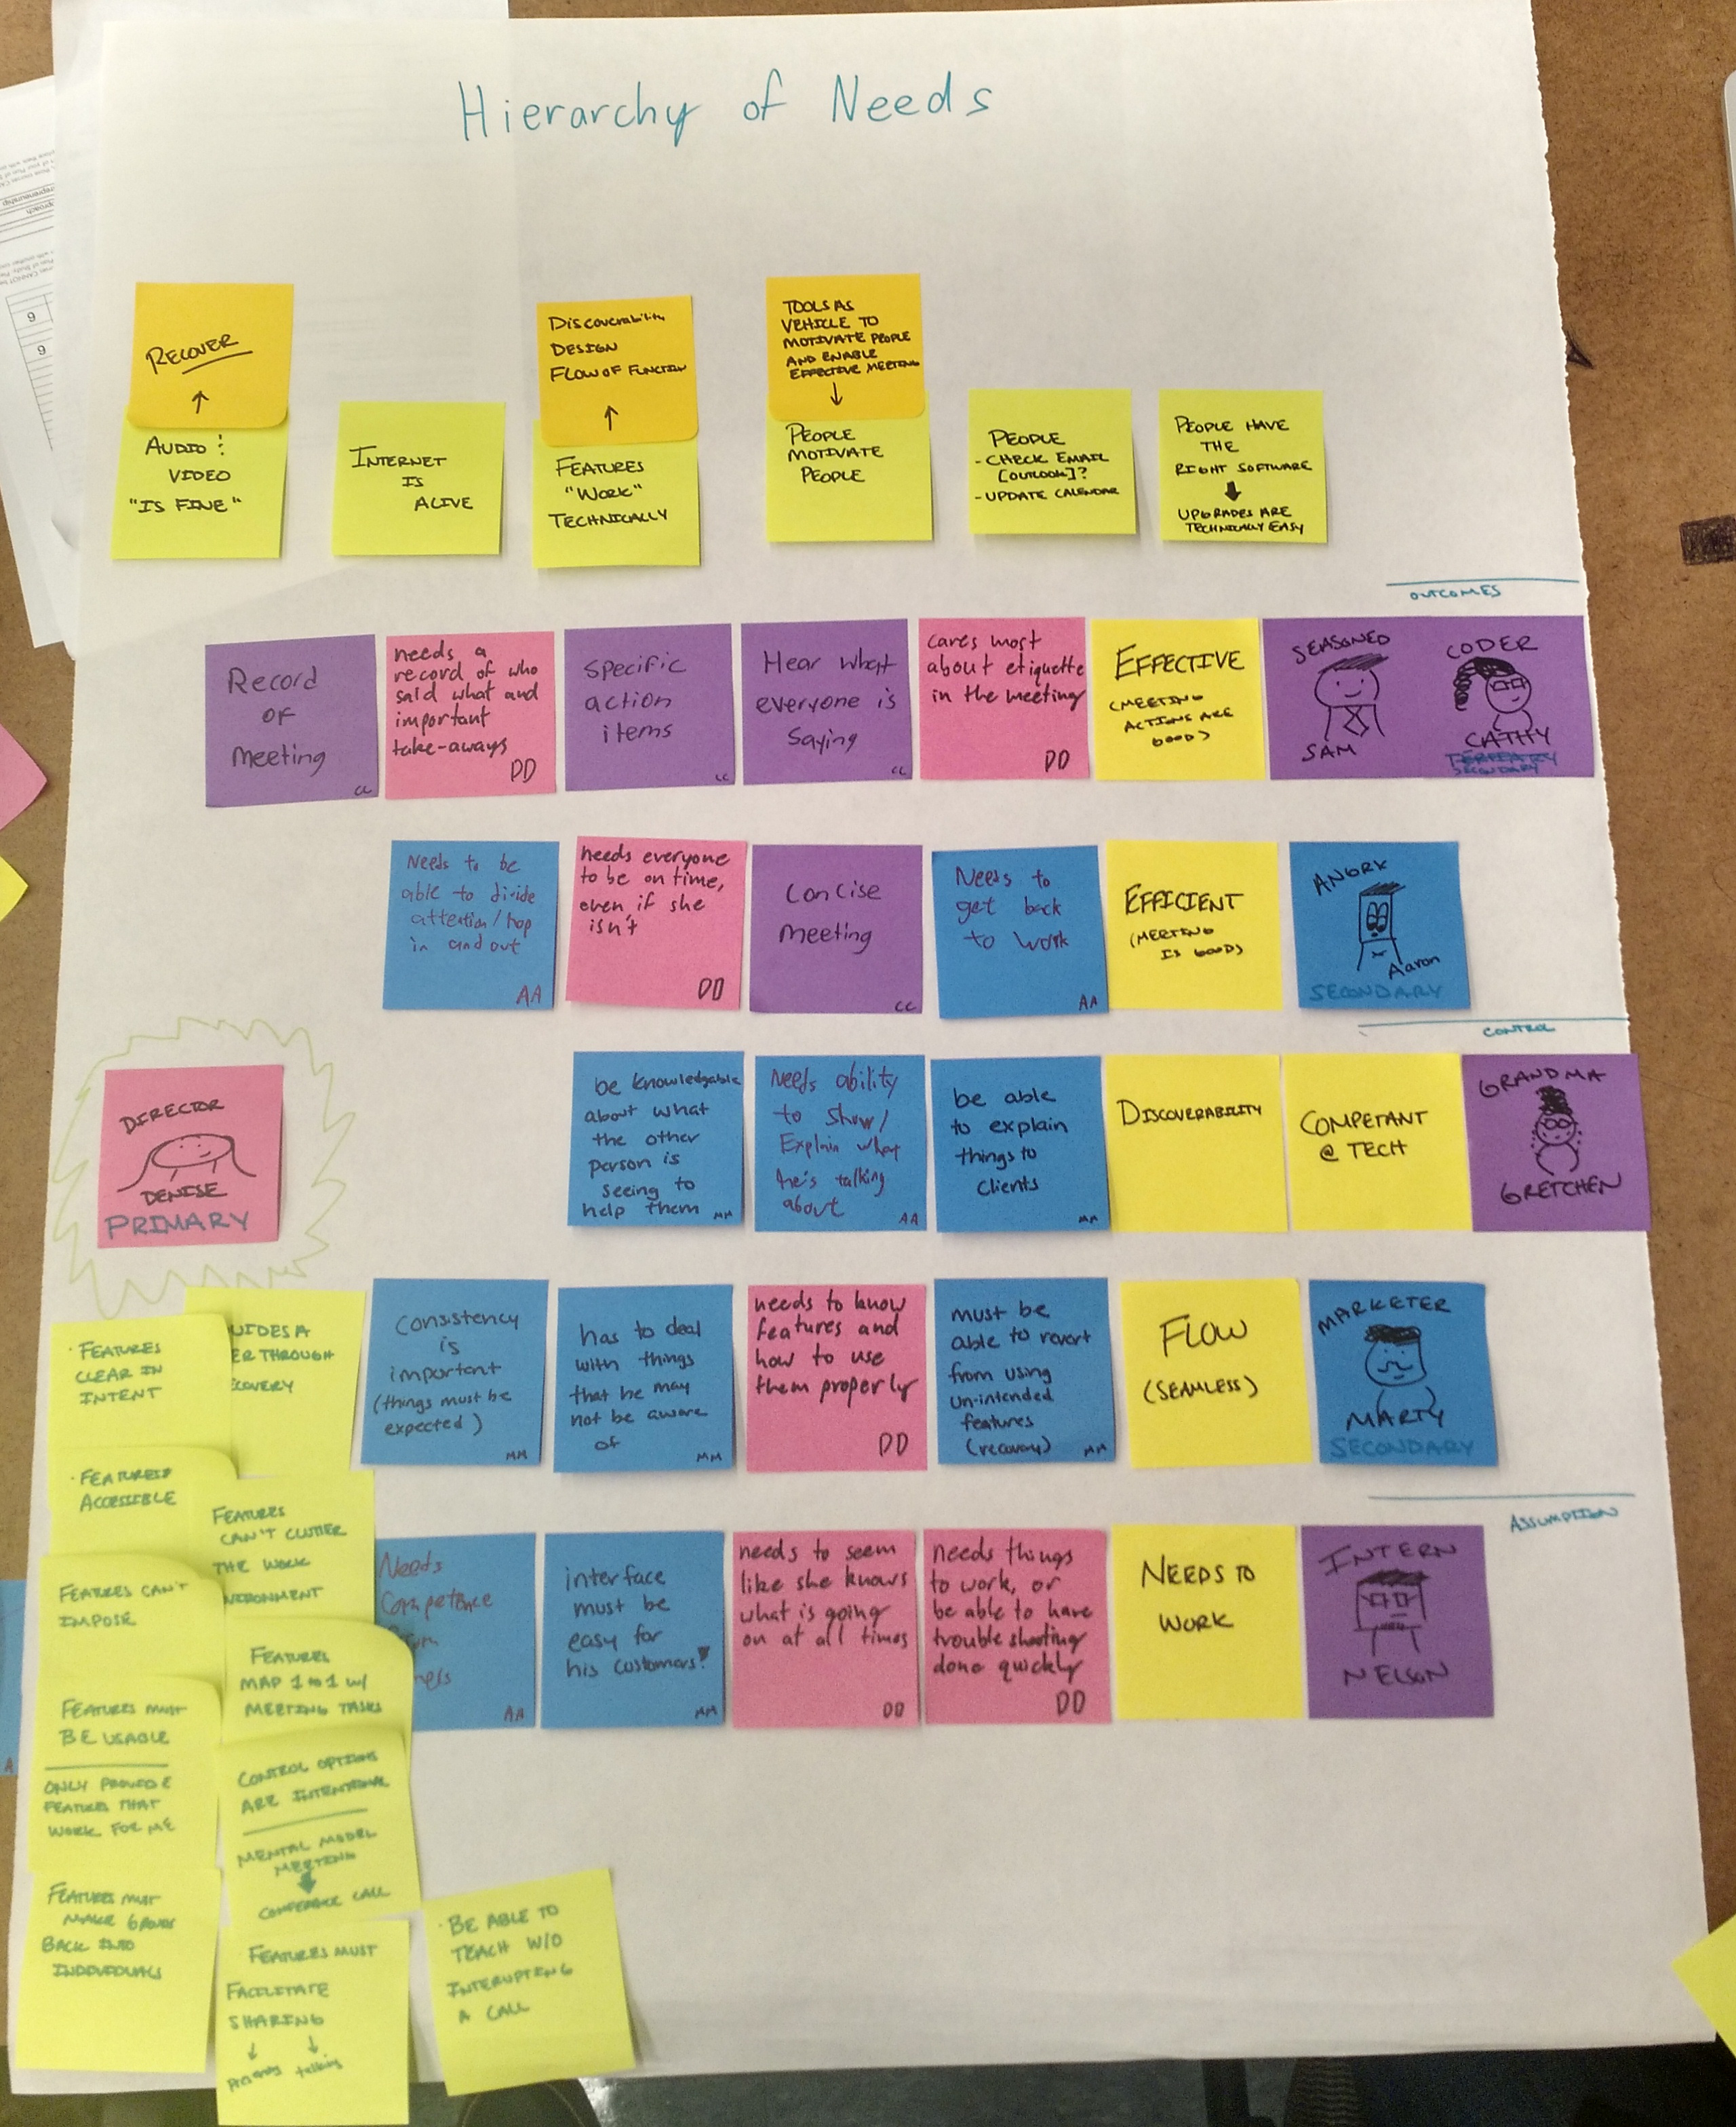 Hierarchy of Needs
RECOVER
↑
AUDIO :
VIDEO
"IS FINE"
INTERNET
IS
ALIVE
Discoverability
DESIGN
FLOW OF FUNCTION
↑
FEATURES
"WORK"
TECHNICALLY
TOOLS AS
VEHICLE TO
MOTIVATE PEOPLE
AND ENABLE
EFFECTIVE MEETING
↓
PEOPLE
MOTIVATE
PEOPLE
PEOPLE
- CHECK EMAIL
[OUTLOOK]?
- UPDATE CALENDAR
PEOPLE HAVE
THE
RIGHT SOFTWARE
↓
UPGRADES ARE
TECHNICALLY EASY
OUTCOMES
Record
OF
Meeting
CC
needs a
record of who
said what and
important
take-aways
DD
Specific
action
items
CC
Hear what
everyone is
Saying
CC
cares most
about etiquette
in the meeting
DD
EFFECTIVE
(MEETING
ACTIONS ARE
GOOD)
SEASONED
SAM
CODER
CATHY
TERTIARY
SECONDARY
Needs to be
able to divide
attention/hop
in and out
AA
needs everyone
to be on time,
even if she
isn't
DD
Concise
Meeting
CC
Needs to
get back
to work
AA
EFFICIENT
(MEETING
IS GOOD)
ANGRY
Aaron
SECONDARY
CONTROL
DIRECTOR
DENISE
PRIMARY
be knowledgable
about what
the other
person is
seeing to
help them
MM
Needs ability
to Show/
Explain what
he's talking
about
AA
be able
to explain
things to
clients
MM
DISCOVERABILITY
COMPETANT
@ TECH
GRANDMA
GRETCHEN
· FEATURES
CLEAR IN
INTENT
UIDES A
ER THROUGH
COVERY
Consistency
is
important
(things must be
expected)
MM
has to deal
with things
that he may
not be aware
of
MM
needs to know
features and
how to use
them properly
DD
must be
able to revert
from using
un-intended
features
(recovery)
MM
FLOW
(SEAMLESS)
MARKETER
MARTY
SECONDARY
ASSUMPTION
· FEATURES
ACCESSIBLE
FEATURES
CAN'T CLUTTER
THE WORK
VIRONMENT
Needs
Competence
AA
interface
must be
easy for
his customers!
MM
needs to seem
like she knows
what is going
on at all times
DD
needs things
to work, or
be able to have
trouble shooting
done quickly
DD
NEEDS TO
WORK
INTERN
NELSON
FEATURES CAN'T
IMPOSE
FEATURES
MAP 1 to 1 W/
MEETING TASKS
FEATURES MUST
BE USABLE
ONLY PROVIDE
FEATURES THAT
WORK FOR ME
CONTROL OPTIONS
ARE INTENTIONAL
MENTAL MODEL
MEETING
↓
CONFERENCE CALL
FEATURES MUST
MAKE GROUPS
BACK INTO
INDIVIDUALS
FEATURES MUST
FACILITATE
SHARING
↓ ↓
talking
· BE ABLE TO
TEACH W/O
INTERUPTING
A CALL